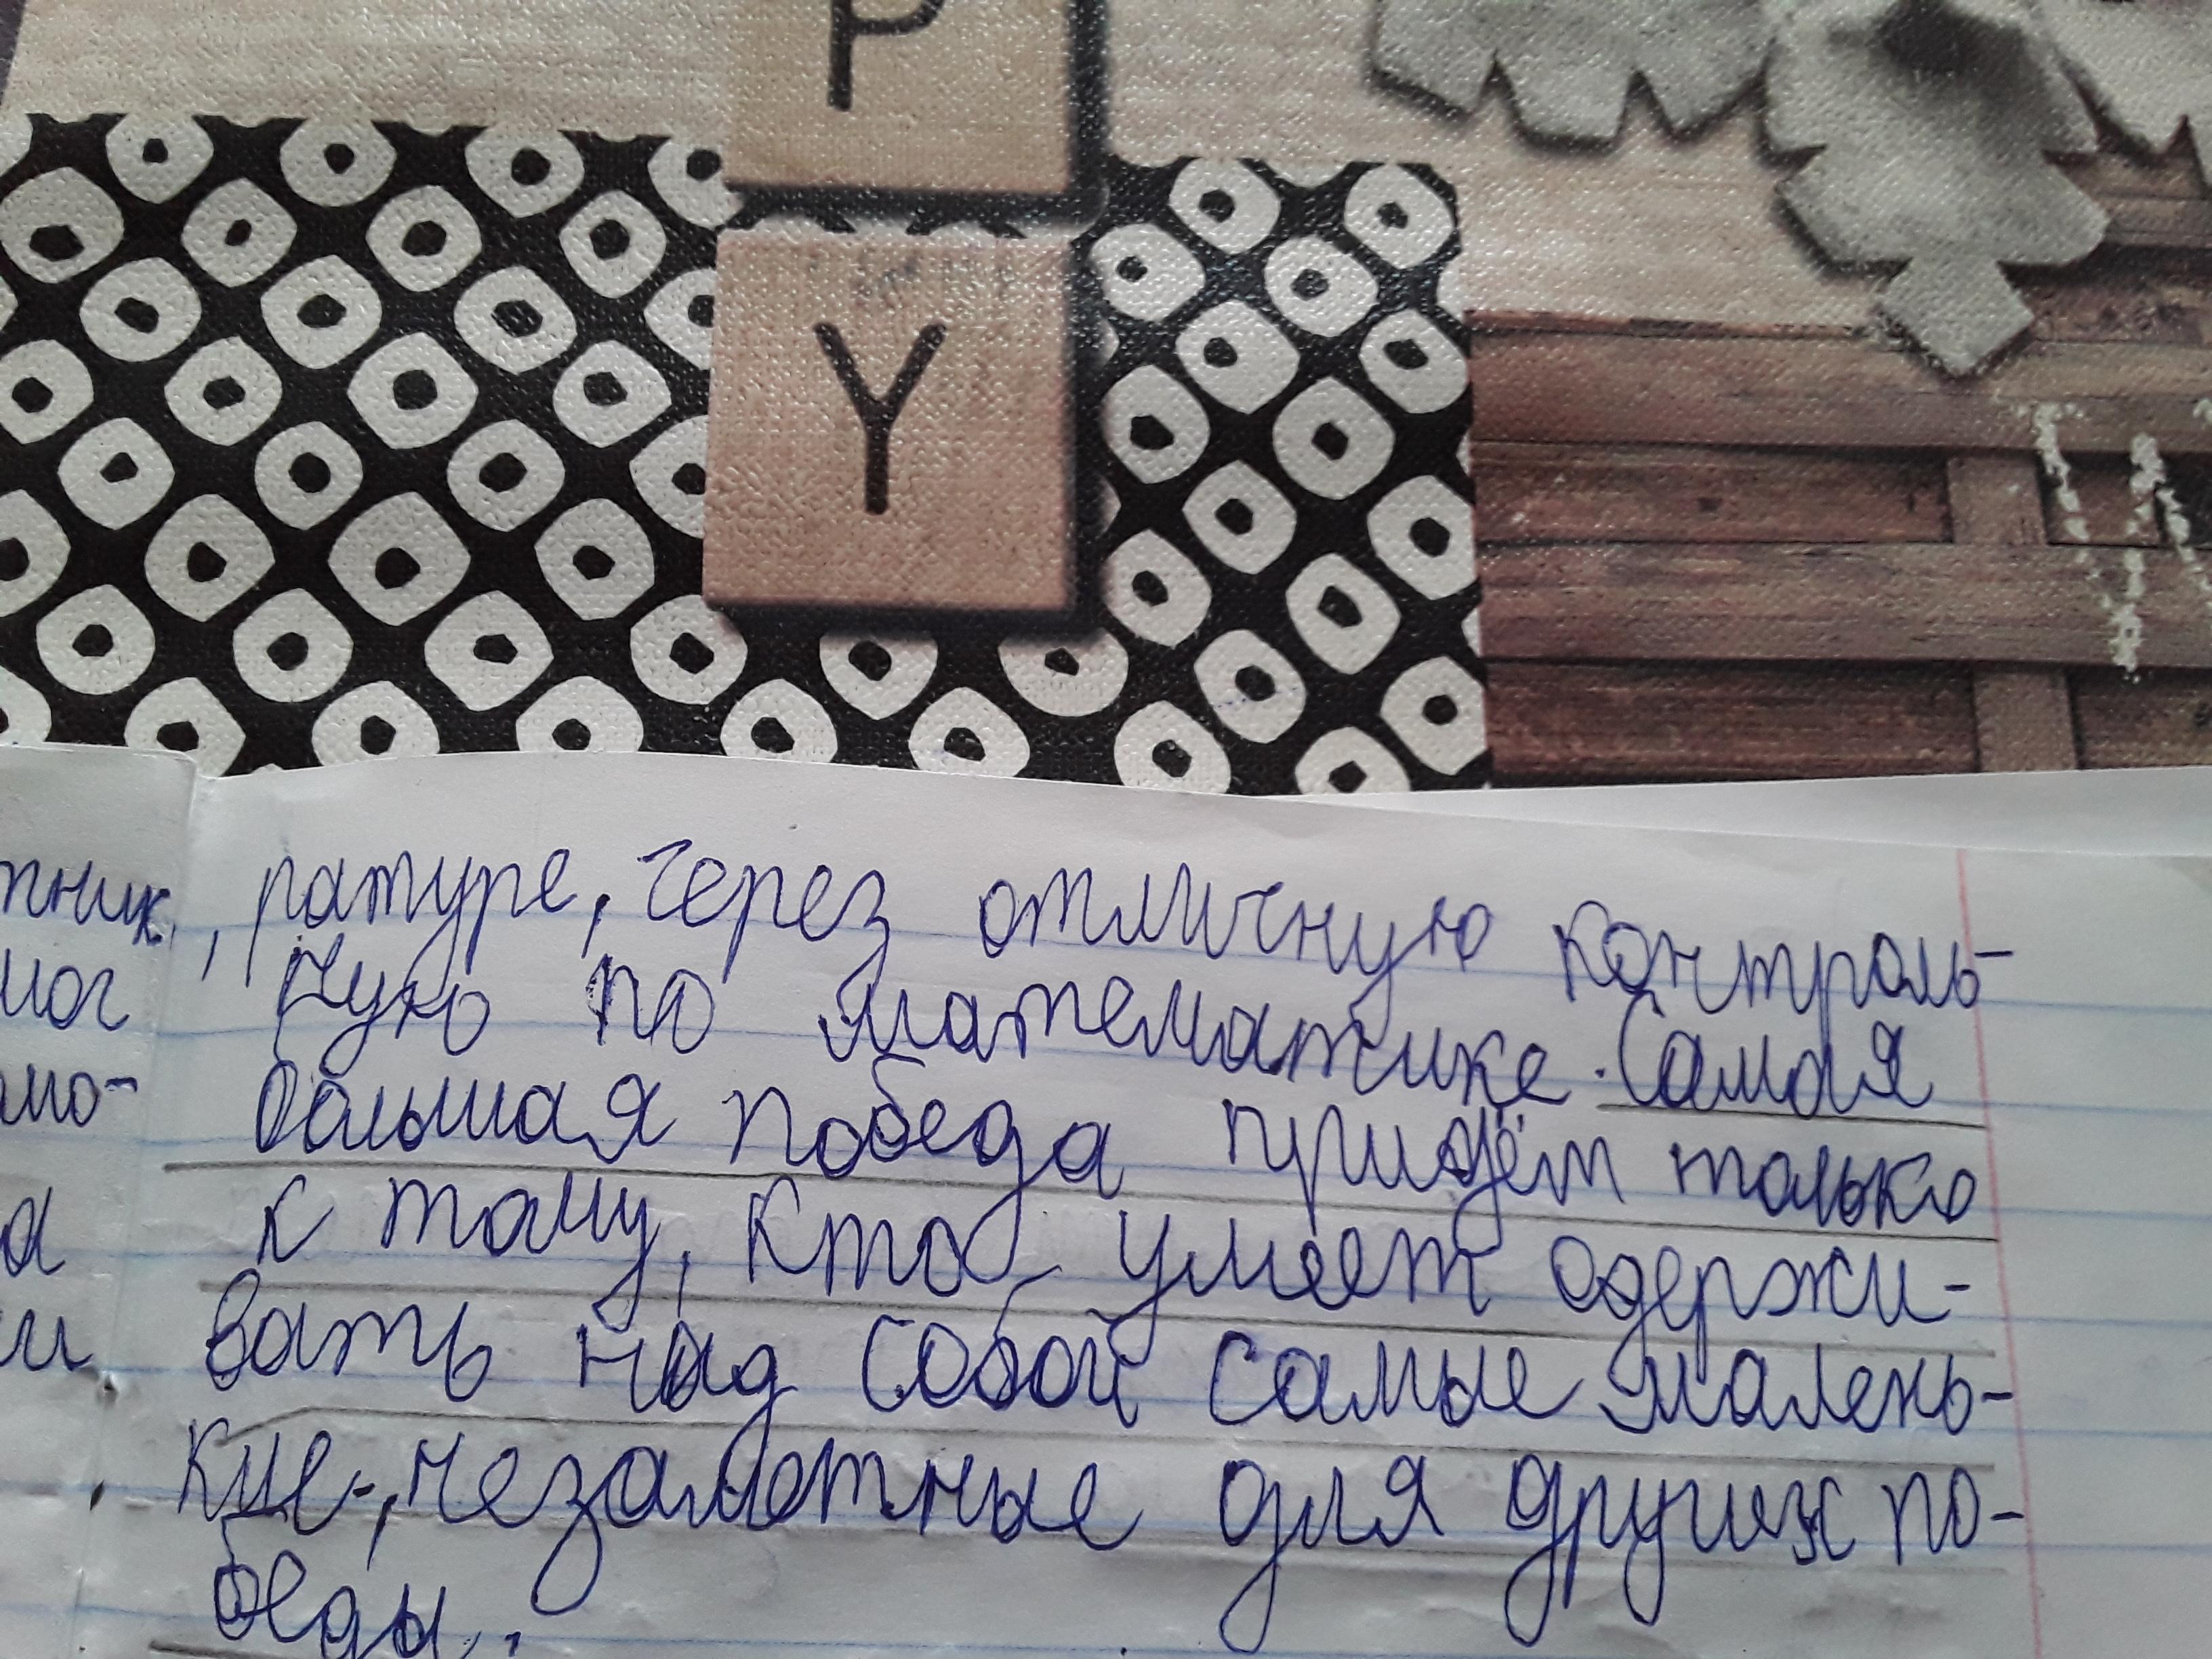 P
Y
ратуре, через отличную контроль-
ную по математике. Самая
большая победа придёт только
к тому, кто умеет одержи-
вать над собой самые малень-
кие, незаметные для других по-
беды.
мог